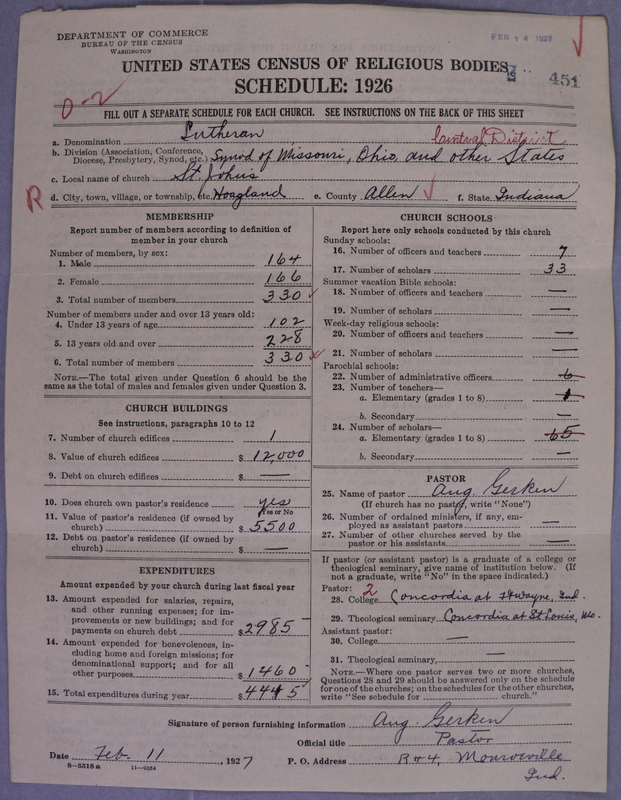 DEPARTMENT OF COMMERCE
BUREAU OF THE CENSUS
WASHINGTON
FEB 14 1927
UNITED STATES CENSUS OF RELIGIOUS BODIES
SCHEDULE: 1926
451
0-2
FILL OUT A SEPARATE SCHEDULE FOR EACH CHURCH. SEE INSTRUCTIONS ON THE BACK OF THIS SHEET
a. Denomination Lutheran Central District
b. Division (Association, Conference, Diocese, Presbytery, Synod, etc.) Synod of Missouri, Ohio, and other States
c. Local name of church St. Johns
R
d. City, town, village, or township, etc. Hoagland e. County Allen f. State Indiana
MEMBERSHIP
Report number of members according to definition of
member in your church
Number of members, by sex:
1. Male 164
2. Female 166
3. Total number of members 330
Number of members under and over 13 years old:
4. Under 13 years of age 102
5. 13 years old and over 228
6. Total number of members 330
NOTE.—The total given under Question 6 should be the
same as the total of males and females given under Question 3.
CHURCH BUILDINGS
See instructions, paragraphs 10 to 12
7. Number of church edifices 1
8. Value of church edifices $ 12,000
9. Debt on church edifices $ —
10. Does church own pastor's residence yes
Yes or No
11. Value of pastor's residence (if owned by
church) $ 5500
12. Debt on pastor's residence (if owned by
church) $ —
EXPENDITURES
Amount expended by your church during last fiscal year
13. Amount expended for salaries, repairs,
and other running expenses; for im-
provements or new buildings; and for
payments on church debt $ 2985
14. Amount expended for benevolences, in-
cluding home and foreign missions; for
denominational support; and for all
other purposes $ 1460
15. Total expenditures during year $ 4445
CHURCH SCHOOLS
Report here only schools conducted by this church
Sunday schools:
16. Number of officers and teachers 7
17. Number of scholars 33
Summer vacation Bible schools:
18. Number of officers and teachers —
19. Number of scholars —
Week-day religious schools:
20. Number of officers and teachers —
21. Number of scholars —
Parochial schools:
22. Number of administrative officers 6
23. Number of teachers—
a. Elementary (grades 1 to 8) 1
b. Secondary —
24. Number of scholars—
a. Elementary (grades 1 to 8) 65
b. Secondary —
PASTOR
25. Name of pastor Aug. Gerken
(If church has no pastor, write "None")
26. Number of ordained ministers, if any, em-
ployed as assistant pastors —
27. Number of other churches served by the
pastor or his assistants —
If pastor (or assistant pastor) is a graduate of a college or
theological seminary, give name of institution below. (If
not a graduate, write "No" in the space indicated.)
Pastor: 2
28. College Concordia at Ft Wayne, Ind.
29. Theological seminary Concordia at St Louis, Mo.
Assistant pastor:
30. College —
31. Theological seminary —
NOTE.—Where one pastor serves two or more churches,
Questions 28 and 29 should be answered only on the schedule
for one of the churches; on the schedules for the other churches,
write "See schedule for church."
Signature of person furnishing information Aug. Gerken
Official title Pastor
Date Feb. 11, 1927 P. O. Address R#4, Monroeville
Ind.
8—5518a 11—9354